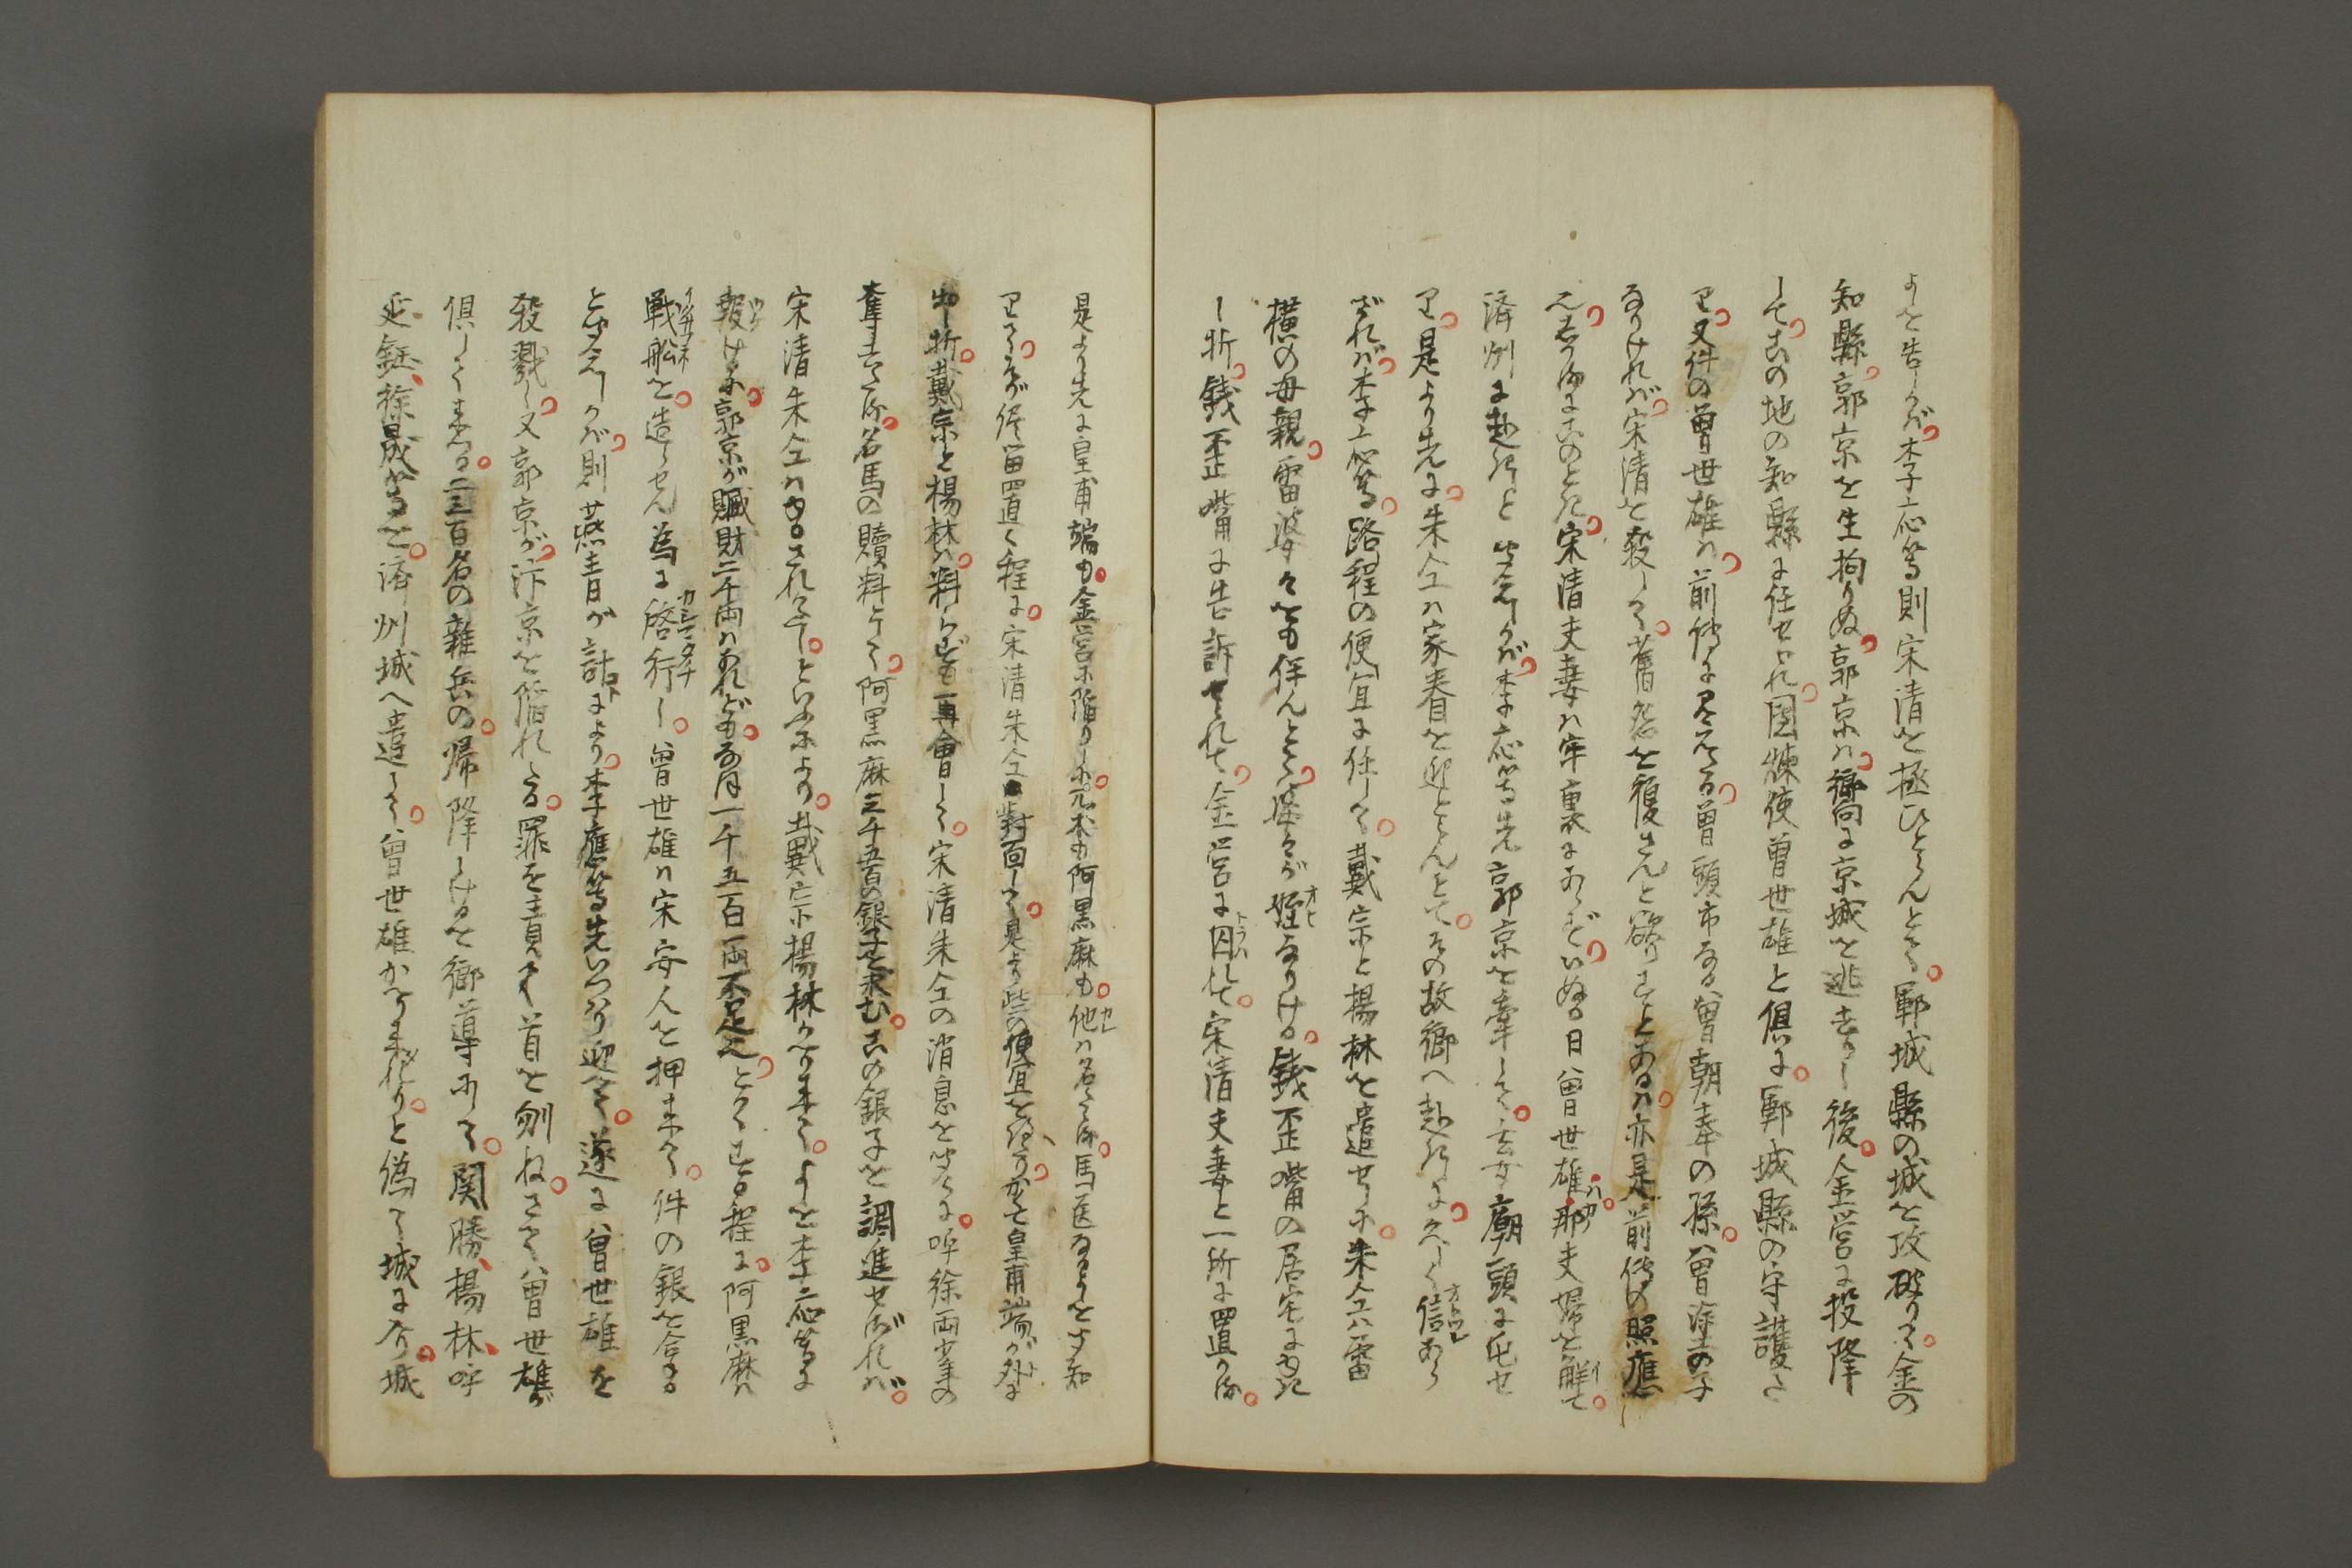 よしを告しかバ李応等則宋清を拯ひとらんとて鄆城縣の城を攻破りて金の
知縣郭京を生拘りぬ郭京ハ嚮に京城を逃去りし後金営に投降
してこの地の知縣に任せられ団練使曽世雄と倶に鄆城縣の守護た
り又件の曽世雄ハ前傳に見えたる曽頭市なる曽朝奉の孫曽塗の子
なりければ宋清を殺して舊怨を復さんと欲りすとあるハ亦是前傳の照應
也このとき宋清夫妻ハ牢裏にあらずいぬる日曽世雄ハ那夫婦を解て
済州に赴きぬと聞えしかバ李応等先郭京を牽して玄女廟頭に屯せ
り是より先に朱仝ハ家眷を迎とらんとてその故郷へ赴きしに久しく信あら
ざれバ李応等路程の便宜に任して戴宗と楊林を遣せしに朱仝ハ雷
横の母親雷婆々をも伴んとて婆々が姪なりける銭歪嘴の居宅にゆき
し折銭歪嘴に告訴せられて金営に囚れて宋清夫妻と一所に置かる
是より先に皇甫端も金営に陥りしに元本も阿黒麻も他ハ名たる馬医なるよしを聞知
りてそが侭留置く程に宋清朱仝に對面して是より些の便宜を得たりかくて皇甫端が外に
出し折戴宗と楊林ハ料らずも再會して宋清朱仝の消息を聞くに呼徐両少年の
奪去たる名馬の贖料として阿黒麻三千五百の銀子を求むこの銀子を調進せざれバ
宋清朱仝ハゆるされずといふにより戴宗楊林かへり来てよしを李応等に
報けるに郭京が贓財二千両ハあれどもなほ一千五百両不足也とかくする程に阿黒麻ハ
戦舩を造らせん為に啓行し曽世雄ハ宋安人を押来て件の銀を合する
と聞えしかバ則燕青が計により李應等先いつはり迎へて遂に曽世雄を
殺戮し又郭京が汴京を陥れたる罪を責て首を刎ねさて曽世雄が
倶して来る二三百名の雜兵の帰降しけるを嚮導にして関勝楊林呼
延鈺徐晟等を済州城へ遣して曽世雄かへり来れりと偽て城に入り城